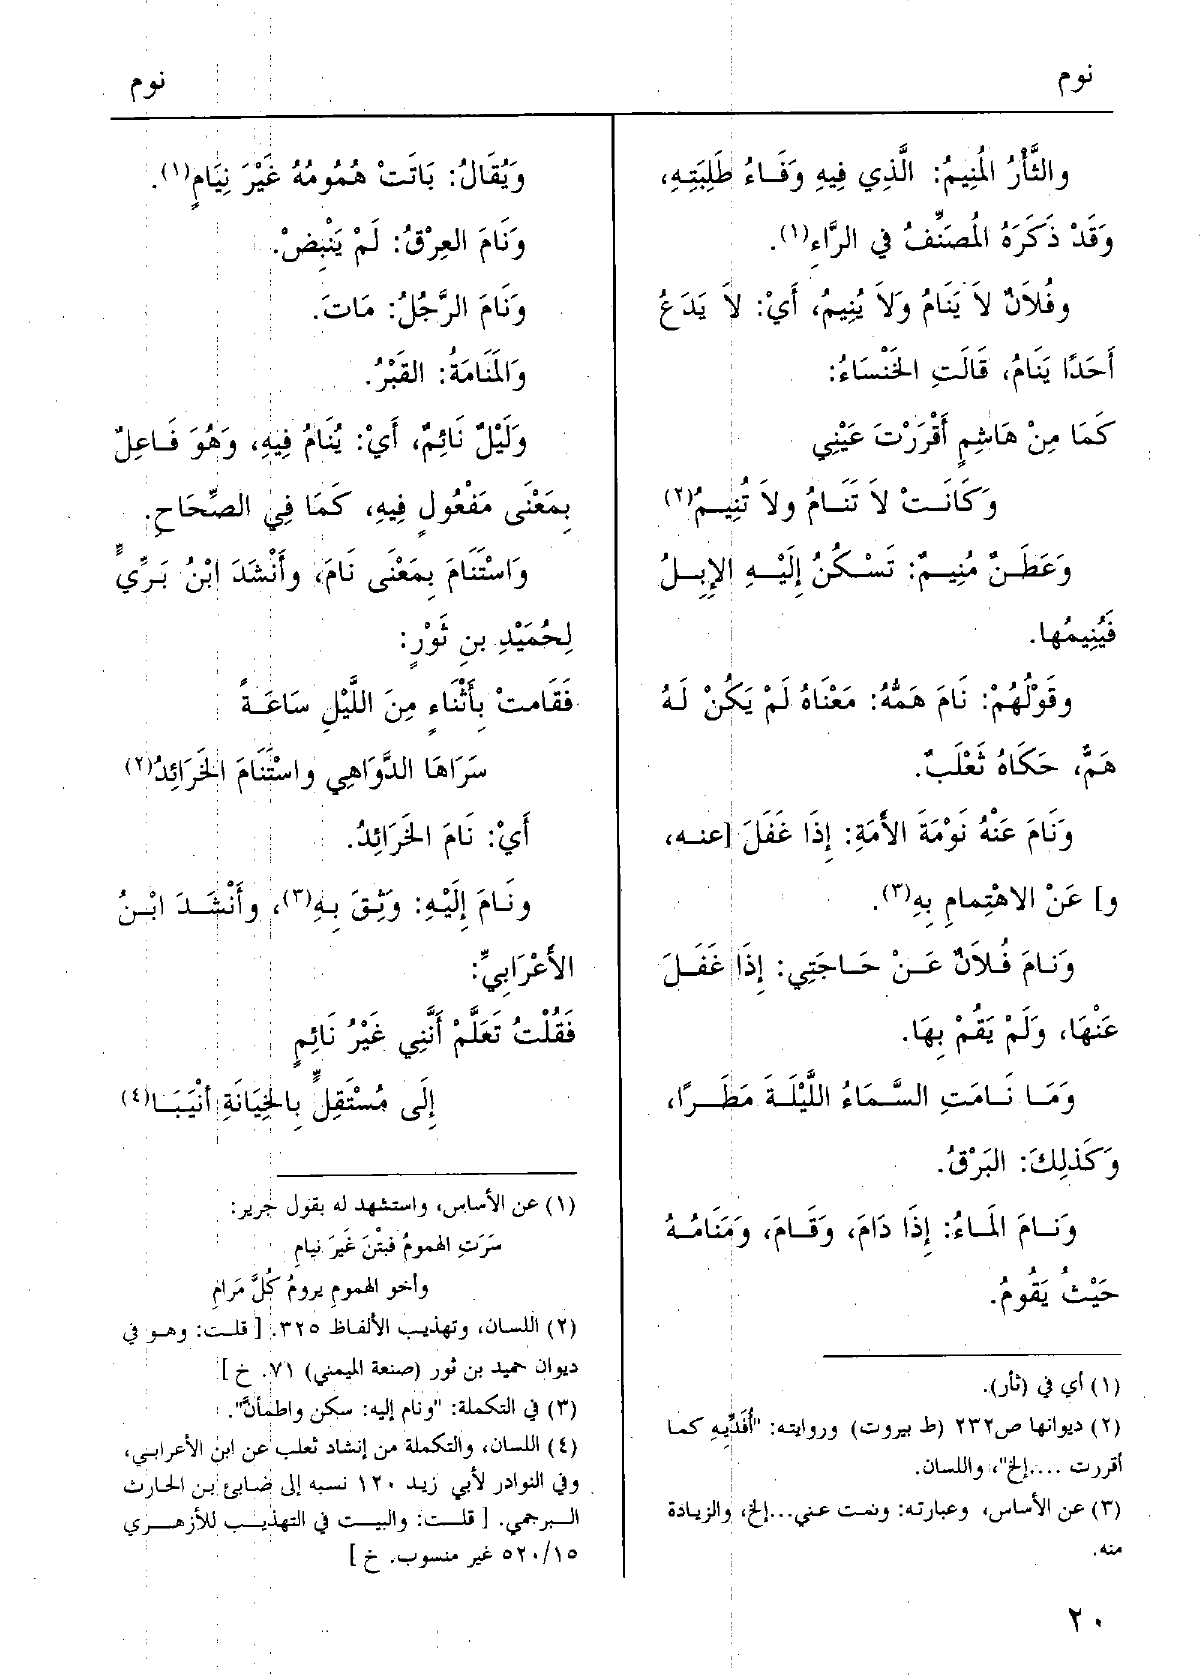 نوم
نوم
والثَّأْرُ المُنِيمُ: الَّذِي فِيهِ وَفَاءُ طَلِبَتِهِ،
وَقَدْ ذَكَرَهُ المُصَنِّفُ في الرَّاءِ(١).
وفُلَانٌ لاَ يَنَامُ وَلاَ يُنِيمُ، أَيْ: لاَ يَدَعُ
أَحَدًا يَنَامُ، قَالَتِ الخَنْسَاءُ:
كَمَا مِنْ هَاشِمٍ أَقْرَرْتَ عَيْنِي
وَكَانَتْ لاَ تَنَامُ ولاَ تُنِيمُ(٢)
وَعَطَنٌ مُنِيمٌ: تَسْكُنُ إِلَيْهِ الإِبِلُ
فَيُنِيمُها.
وقَوْلُهُمْ: نَامَ هَمُّهُ: مَعْنَاهُ لَمْ يَكُنْ لَهُ
هَمٌّ، حَكَاهُ ثَعْلَبٌ.
وَنَامَ عَنْهُ نَوْمَةَ الأَمَةِ: إِذَا غَفَلَ [عنه،
و] عَنْ الاهْتِمامِ بِهِ(٣).
وَنامَ فُلانٌ عَنْ حَاجَتِي: إِذَا غَفَلَ
عَنْهَا، وَلَمْ يَقُمْ بِهَا.
وَمَا نَامَتِ السَّمَاءُ اللَّيْلَةَ مَطَرًا،
وَكَذلِكَ: البَرْقُ.
وَنامَ المَاءُ: إِذَا دَامَ، وَقَامَ، وَمَنَامُهُ
حَيْثُ يَقُومُ.
(١) أي في (ثأر).
(٢) ديوانها ص٢٣٢ (ط بيروت) وروايته: "أُفَدِّيهِ كما
أقررت ....إلخ"، واللسان.
(٣) عن الأساس، وعبارته: ونمت عني...إلخ، والزيادة
منه.
وَيُقَالُ: بَاتَتْ هُمُومُهُ غَيْرَ نِيَامٍ(١).
وَنَامَ العِرْقُ: لَمْ يَنْبِضْ.
وَنَامَ الرَّجُلُ: مَاتَ.
وَالمَنَامَةُ: القَبْرُ.
وَلَيْلٌ نَائِمٌ، أَيْ: يُنَامُ فِيهِ، وَهُوَ فَاعِلٌ
بِمَعْنَى مَفْعُولٍ فِيهِ، كَمَا فِي الصِّحَاحِ.
وَاسْتَنَامَ بِمَعْنَى نَامَ، وأَنْشَدَ ابْنُ بَرِّيٍّ
لِحُمَيْدِ بنِ ثَوْرٍ:
فَقَامتْ بِأَثْنَاءٍ مِنَ اللَّيْلِ سَاعَةً
سَرَاهَا الدَّوَاهِي واسْتَنَامَ الخَرَائِدُ(٢)
أَيْ: نَامَ الخَرَائِدُ.
ونَامَ إِلَيْهِ: وَثِقَ بِهِ(٣)، وأَنْشَدَ ابْنُ
الأَعْرَابِيِّ:
فَقُلْتُ تَعَلَّمْ أَنَّنِي غَيْرُ نَائِمٍ
إِلَى مُسْتَقِلٍّ بِالخِيَانَةِ أَنْيَبَا(٤)
(١) عن الأساس، واستشهد له بقول جرير:
سَرَتِ الهمومُ فبتْنَ غَيرَ نيامِ
وأخو الهمومِ يرومُ كُلَّ مَرامِ
(٢) اللسان، وتهذيب الألفاظ ٣٢٥. [ قلت: وهو في
ديوان حميد بن ثور (صنعة الميمني) ٧١. خ ]
(٣) في التكملة: "ونام إليه: سكن واطمأنّ".
(٤) اللسان، والتكملة من إنشاد ثعلب عن ابن الأعرابي،
وفي النوادر لأبي زيد ١٢٠ نسبه إلى ضابئ بن الحارث
البرجمي. [ قلت: والبيت في التهذيب للأزهري
٥٢٠/١٥ غير منسوب. خ ]
٢٠